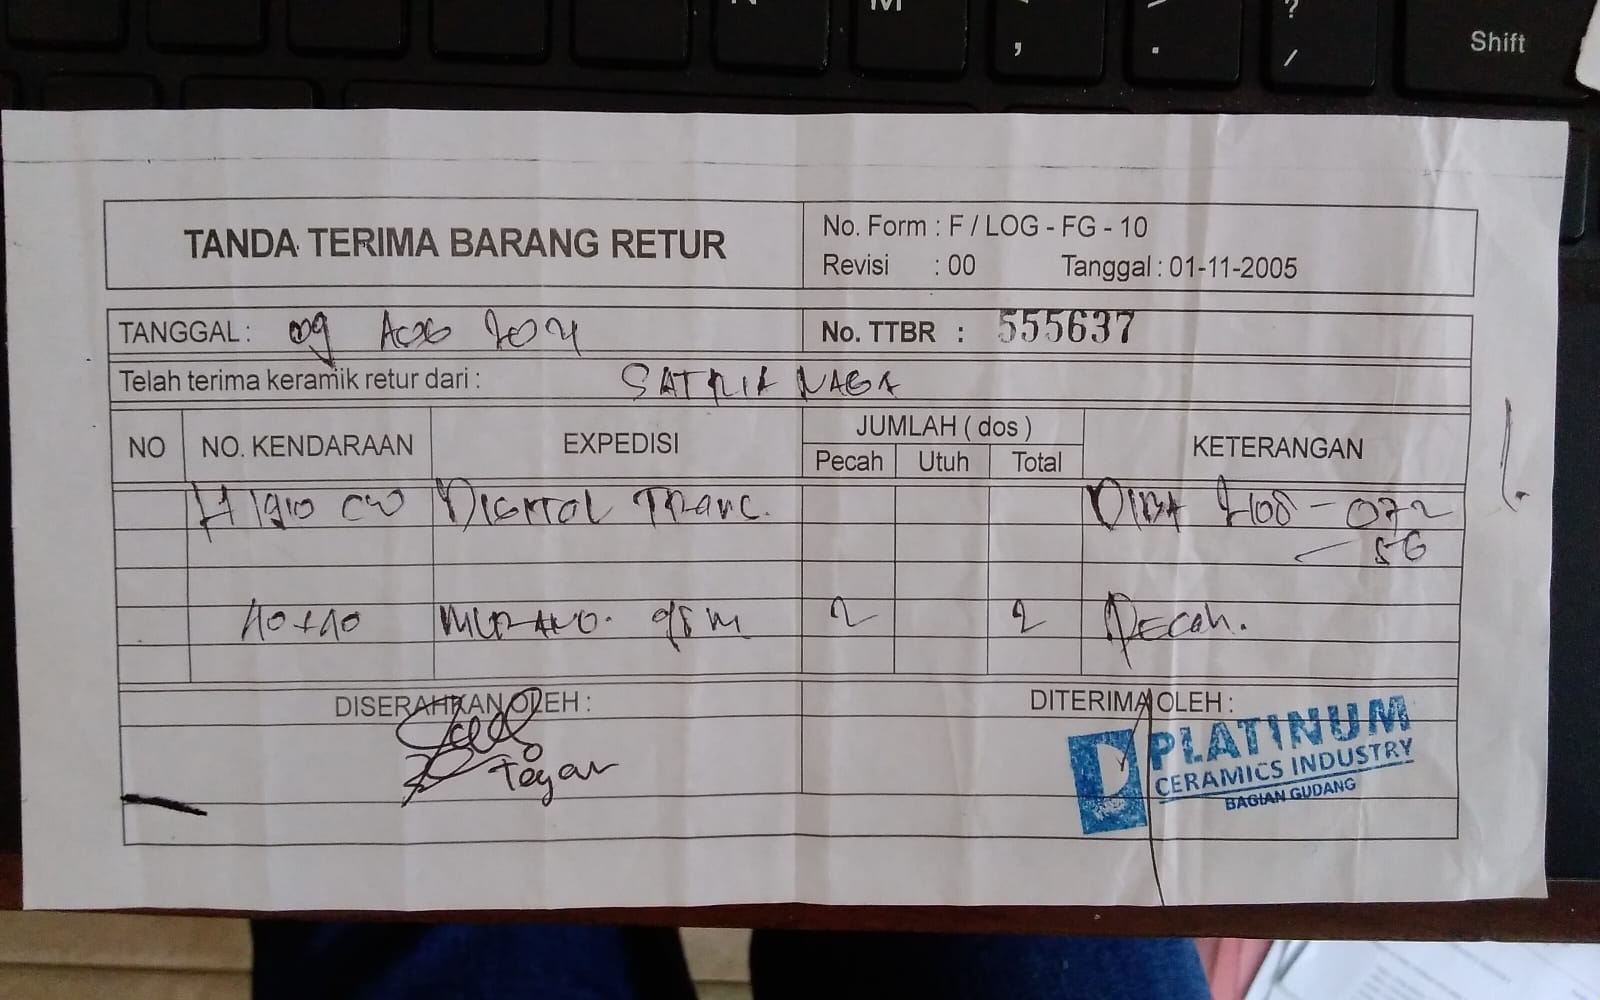 N M , . ? / Shift
TANDA TERIMA BARANG RETUR
No. Form : F / LOG - FG - 10
Revisi : 00 Tanggal : 01-11-2005
TANGGAL : 09 AGS 2021
No. TTBR : 555637
Telah terima keramik retur dari : SATRIA NAGA
NO NO. KENDARAAN EXPEDISI JUMLAH ( dos ) KETERANGAN
Pecah Utuh Total
DIGITAL TRANC. 2108-072
56
40+40 MURANO. 2 2 PECAH.
DISERAHKAN OLEH : DITERIMA OLEH :
Tegar
PLATINUM
CERAMICS INDUSTRY
BAGIAN GUDANG